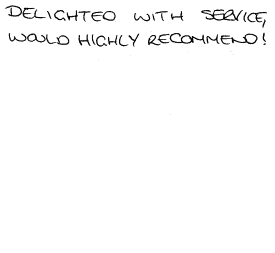 DELIGHTED WITH SERVICE,
WOULD HIGHLY RECOMMEND!